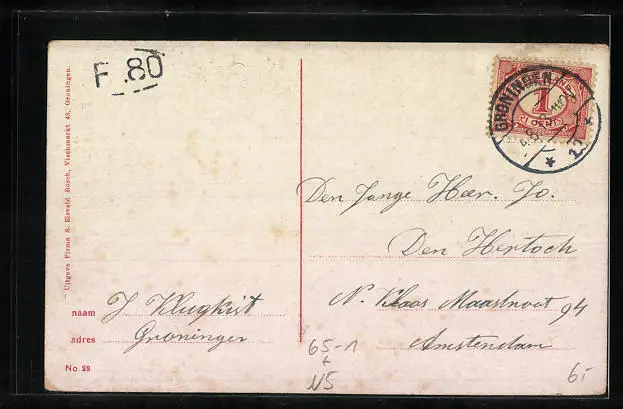 F .80
GRONINGEN
1
CENT
12
Uitgave Firma S. Eisveld Bosch, Vischmarkt 43, Groningen.
Den Jonge Heer. Jo.
Den Hertoch
N. Klaas Maastraat 94
Amsterdam
naam J Klugkist
adres Groningen
No. 29
65-1
+
N5
6.-